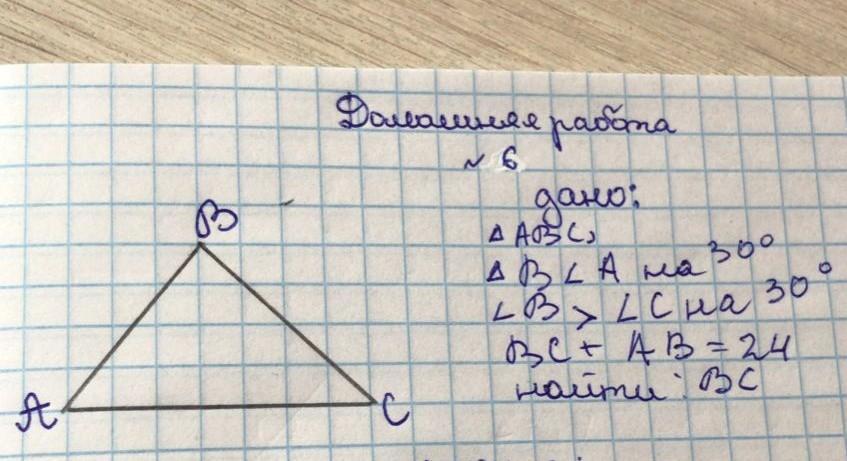 Домашняя работа
№ 6
дано:
△ ABC,
△ B < A на 30°
∠B > ∠C на 30°
BC + AB = 24
найти: BC
B
A
C